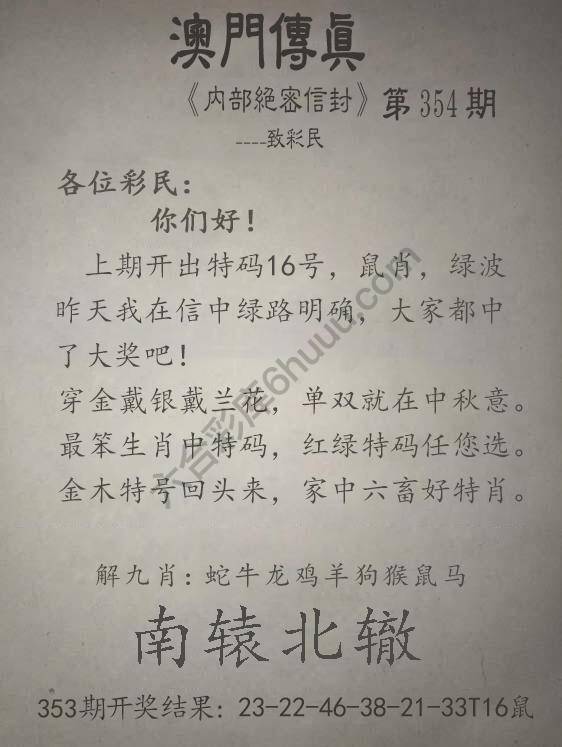 澳門傳眞
《内部絕密信封》第354期
----致彩民
各位彩民：
你们好！
上期开出特码16号，鼠肖，绿波
昨天我在信中绿路明确，大家都中
了大奖吧！
穿金戴银戴兰花，单双就在中秋意。
最笨生肖中特码，红绿特码任您选。
金木特号回头来，家中六畜好特肖。
解九肖：蛇牛龙鸡羊狗猴鼠马
南辕北辙
353期开奖结果：23-22-46-38-21-33T16鼠
六合彩库6huuu.com